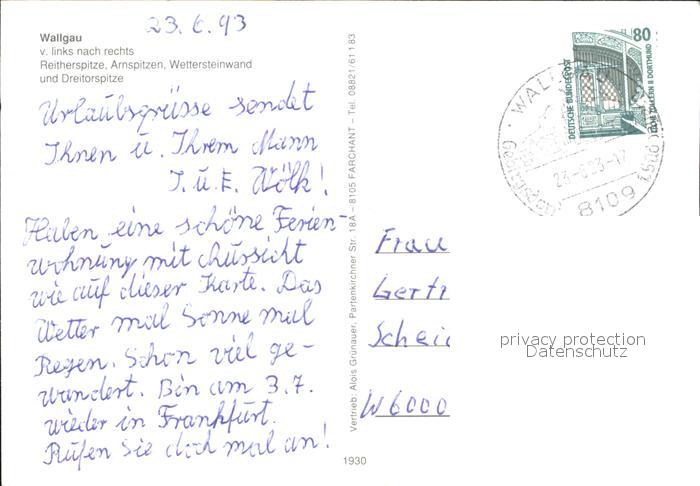 23.6.93
Wallgau
v. links nach rechts
Reitherspitze, Arnspitzen, Wettersteinwand
und Dreitorspitze
Urlaubsgrüsse sendet
Ihnen u. Ihrem Mann
I. u. E. Wölk!
Haben eine schöne Ferien-
wohnung mit Aussicht
wie auf dieser Karte. Das
Wetter mal Sonne mal
Regen. Schon viel ge-
wandert. Bin am 3.7.
wieder in Frankfurt.
Rufen Sie doch mal an!
Vertrieb: Alois Grünauer, Partenkirchner Str. 18A – 8105 FARCHANT – Tel. 08821/61183
1930
80
DEUTSCHE BUNDESPOST
ZOLLERN II DORTMUND
WALLGAU
23.-6.93-17
8109
Frau
Gertr
Schei
W6000
privacy protection
Datenschutz